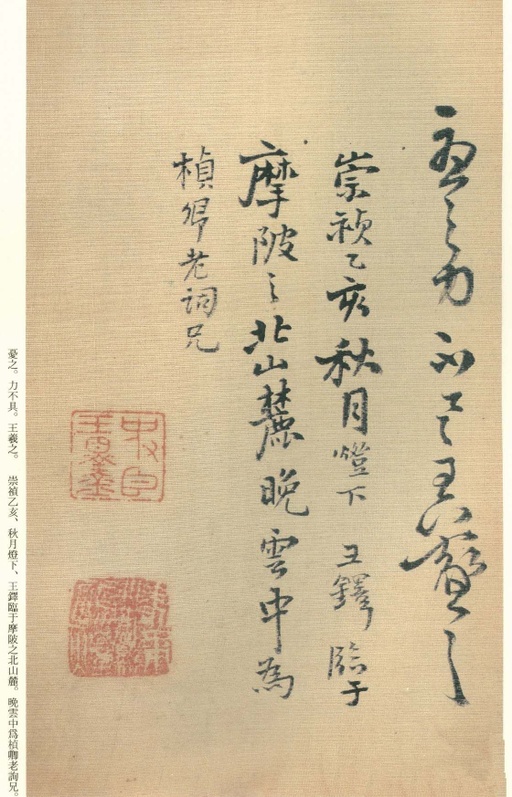 憂之力不具王羲之
崇禎乙亥秋月燈下 王鐸臨于
摩陂之北山麓晚雲中為
楨卿老詞兄
憂之。力不具。王羲之。 崇禎乙亥、秋月燈下、王鐸臨于摩陂之北山麓。晚雲中爲楨卿老詢兄。